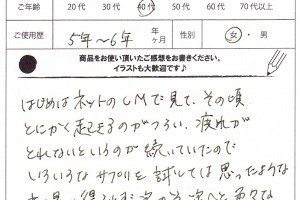 ご年齢 20代 30代 40代 50代 60代 70代以上
ご使用歴 5年〜6年 年 ヶ月 性別 女・男
商品をお使い頂いたご感想をお書きください。
イラストも大歓迎です♪
はじめはネットのCMで見て、その頃
とにかく起きるのがつらい、疲れが
とれないというのが続いていたので
いろいろな サプリを 試しては思ったような